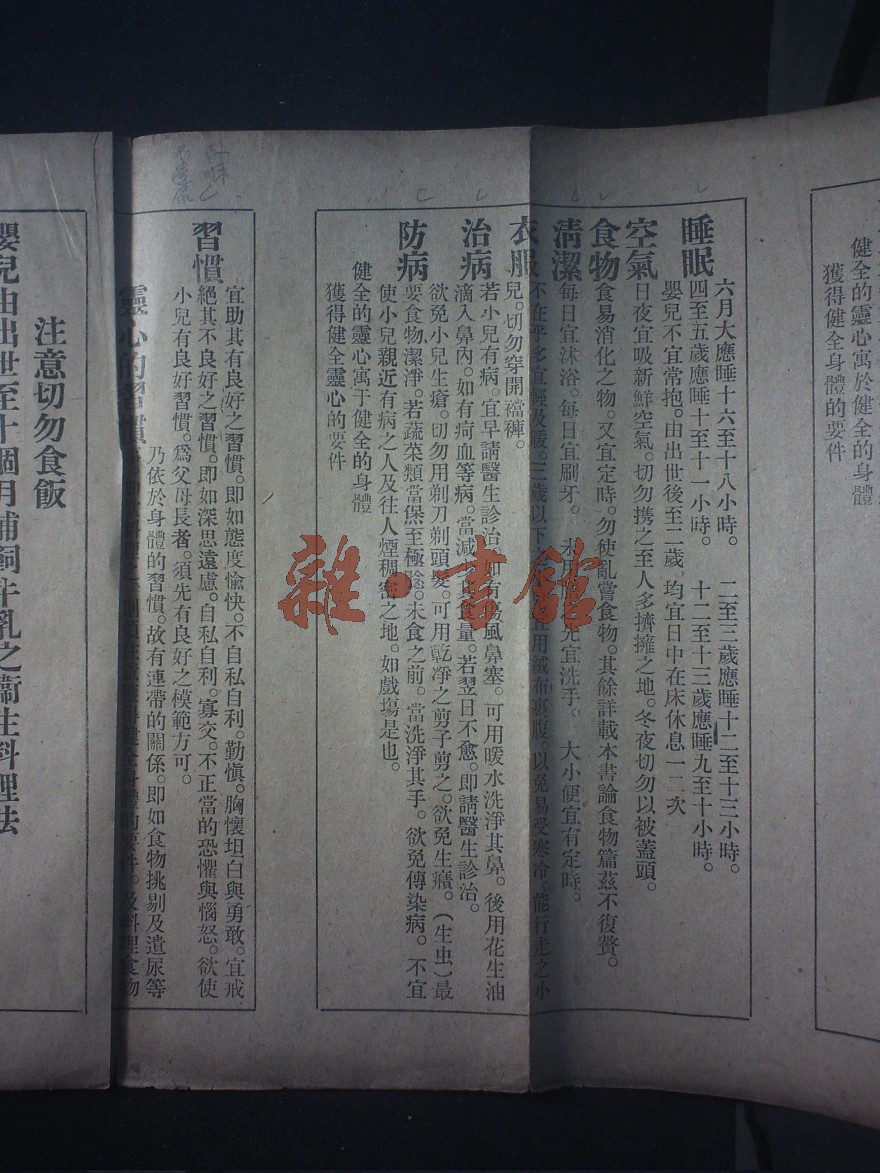 健全的靈心寓於健全的
獲得健全身體的要件
睡眠
六月大應睡十六至十八小時。 二至三歲應睡十二至十三小時。
四至五歲應睡十至十一小時。 十二至十三歲應睡九至十小時。
嬰兒不宜常抱。由出世後至二歲。均宜日中在床休息一二次
空氣 日夜宜吸新鮮空氣。切勿携之至人多擠擁之地。冬夜切勿以被蓋頭。
食物 食易消化之物。又宜定時。勿使亂嘗食物。其餘詳載本書論食物篇茲不復贅。
清潔 每日宜沐浴。每日宜刷牙。未用 先宜洗手。 大小便宜有定時。
衣服 不在乎多宜輕及暖。三歲以下之 用絨布裹腹。以免易受寒冷。能行走之小
兒。切勿穿開襠褲。
治病 若小兒有病。宜早請醫生診治。如有傷風鼻塞。可用暖水洗淨其鼻。後用花生油
滴入鼻內。如有疴血等病。當減少其食量。若翌日不愈。即請醫生診治。
欲免小兒生瘡。切勿用剃刀剃頭髮。可用乾淨之剪子剪之。欲免生癪。(生虫)最
防病 要食物潔淨。若蔬菜類當煲至極腍。未食之前。當洗淨其手。欲免傳染病。不宜
使小兒親近有病之人及往人煙稠密之地。如戲塲是也。
健全的靈心寓于健全的身體
獲得健全靈心的要件
習慣
宜助其有良好之習慣。即如態度愉快。不自私自利。勤慎。胸懷坦白與勇敢。宜戒
絕其不良好之習慣。即如深思遠慮。自私自利。寡交。不正當的恐懼與惱怒。欲使
小兒有良好習慣。爲父母長者。須先有良好之模範方可。
靈心的習慣 乃依於身體的習慣。故有連帶的關係。即如食物挑剔及遺尿等
注意切勿食飯
嬰兒由出世至十個月哺飼牛乳之衞生料理法
雜·書館